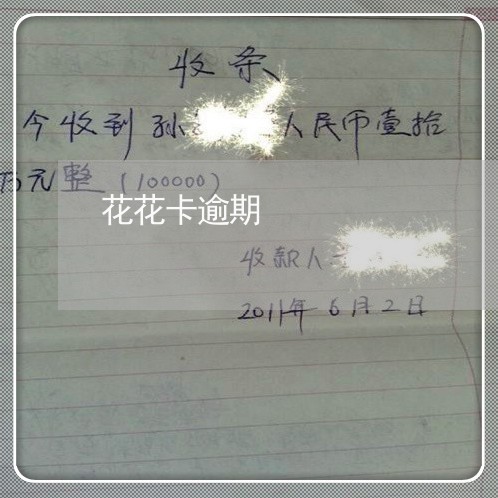 收条
今收到孙 人民币壹拾
万元整（100000）
花花卡逾期
收款人
2011年6月2日